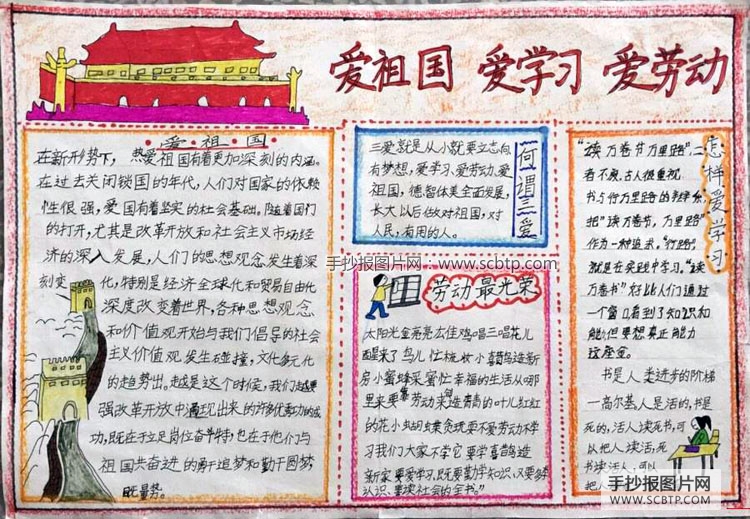 爱祖国 爱学习 爱劳动
爱·祖·国
在新形势下，热爱祖国有着更加深刻的内涵。
在过去关闭锁国的年代，人们对国家的依赖
性很强，爱国有着坚实的社会基础。随着国门
的打开，尤其是改革开放和社会主义市场经
济的深入发展，人们的思想观念发生着深
刻变化，特别是经济全球化和贸易自由化
深度改变着世界，各种思想观念
和价值观开始与我们倡导的社会
主义价值观发生碰撞，文化多元化
的趋势出。越是这个时候，我们越要
强改革开放中涌现出来的许多优秀的成
功，既在于立足岗位奋争特，也在于他们与
祖国共奋进的
追梦和勤于圆梦，
何谓三爱
三爱就是从小就要立志向
有梦想，爱学习、爱劳动、爱
祖国，德智体美全面发展，
长大以后做对祖国，对
人民，有用的人。
劳动最光荣
太阳光金亮亮
鸡唱三唱花儿
醒来了鸟儿忙梳妆小喜鹊造新
房小蜜蜂采蜜忙幸福的生活从哪
里来要靠劳动来
造青青的叶儿红红
的花小蝴蝶贪玩耍不爱劳动不学
习我们大家不学它要学喜鹊造
新家要爱学习，既要勤学知识，又要多
认识、要读社会的全书。”
怎样爱学习
“读万卷书万里路”二
者不废，古人很重视
书与行万里路的
把“读万卷书，万里路”
作为一种追求。“行路”
就是在实践中学习。“读
万卷书”好比人们通过
一个窗口看到了知识和
能，但要想真正能力
这座金。
书是人类进步的阶梯
一高尔基人是活的，书是
死的，活人读死书，可
以把人读活，死
书读活人，可以
把人
手抄报图片网：www.scbtp.com
手抄报图片网
WWW.SCBTP.COM